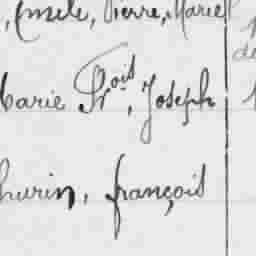 , Emile, Pierre, Marie
Marie Fr.ois, Joseph
hurin, françois